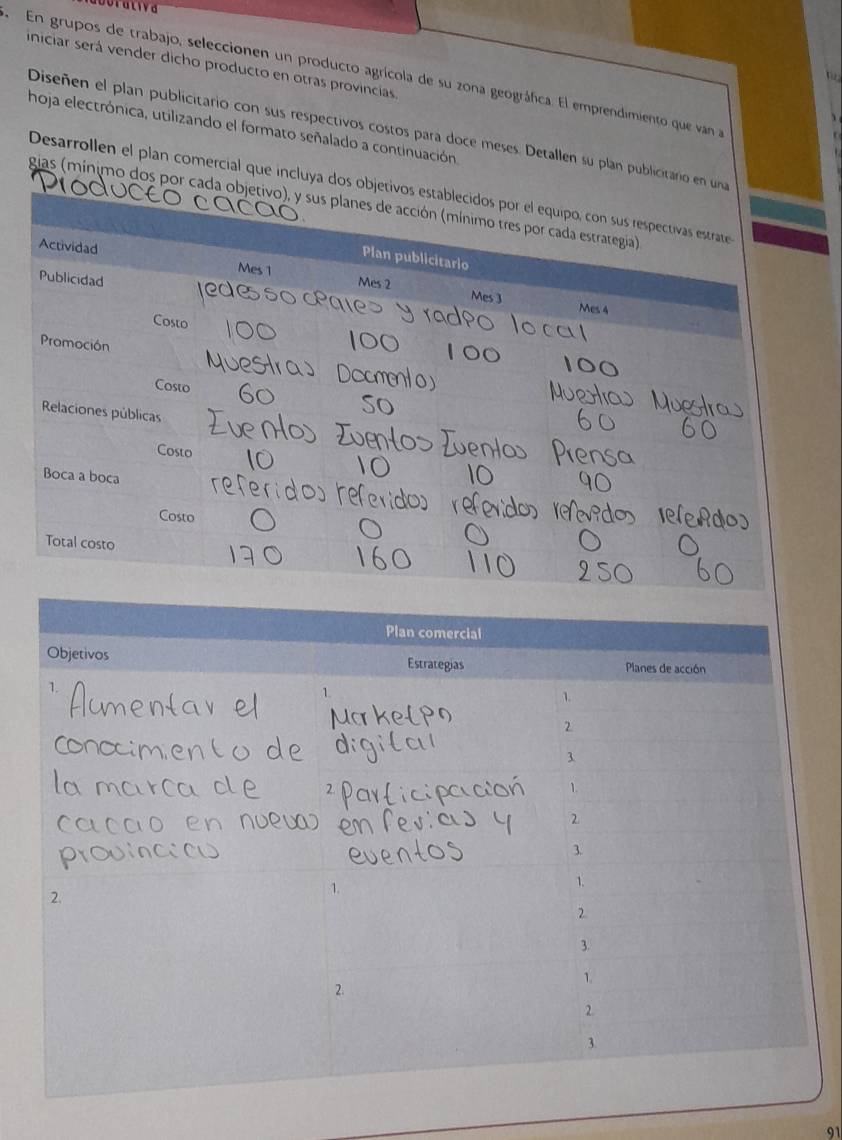 5. En grupos de trabajo, seleccionen un producto agrícola de su zona geográfica. El emprendimiento que van a
iniciar será vender dicho producto en otras provincias.
Diseñen el plan publicitario con sus respectivos costos para doce meses. Detallen su plan publicitario en una
hoja electrónica, utilizando el formato señalado a continuación.
Desarrollen el plan comercial que incluya dos objetivos establecidos por el equipo, con sus respectivas estrate-
gias (mínimo dos por cada objetivo), y sus planes de acción (mínimo tres por cada estrategia).
Producto cacao.
Plan publicitario
Actividad Mes 1 Mes 2 Mes 3 Mes 4
Publicidad redes soceales y radeo local
Costo 100 100 100 100
Promoción Muestras Docmentos Muestras Muestras
Costo 60 50 60 60
Relaciones públicas Eventos Eventos Eventos Prensa
Costo 10 10 10 90
Boca a boca referidos referidos referidos referidos referidos
Costo 0 0 0 0 0
Total costo 170 160 110 250 60
Plan comercial
Objetivos Estrategias Planes de acción
1. Aumentar el 1. Marketen 1.
2.
conocimiento de digital
3.
la marca de 2 participación 1.
cacao en nuevas en ferias y 2
provincias eventos 3.
2. 1. 1.
2.
3.
2. 1.
2.
3.
91